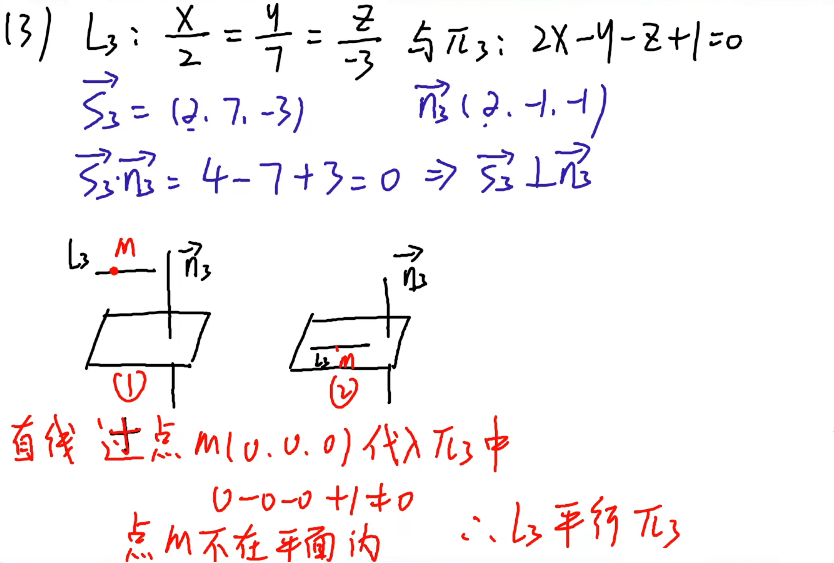 (3) L₃: x/2 = y/7 = z/-3 与π₃: 2x-y-z+1=0
S₃⃗ = (2, 7, -3) n₃⃗ (2, -1, -1)
S₃⃗·n₃⃗ = 4-7+3=0 ⇒ S₃⃗⊥n₃⃗
L₃ M n₃⃗
n₃⃗
L₃ M
① ②
直线过点M(0,0,0)代入π₃中
0-0-0+1≠0
点M不在平面内 ∴L₃平行π₃